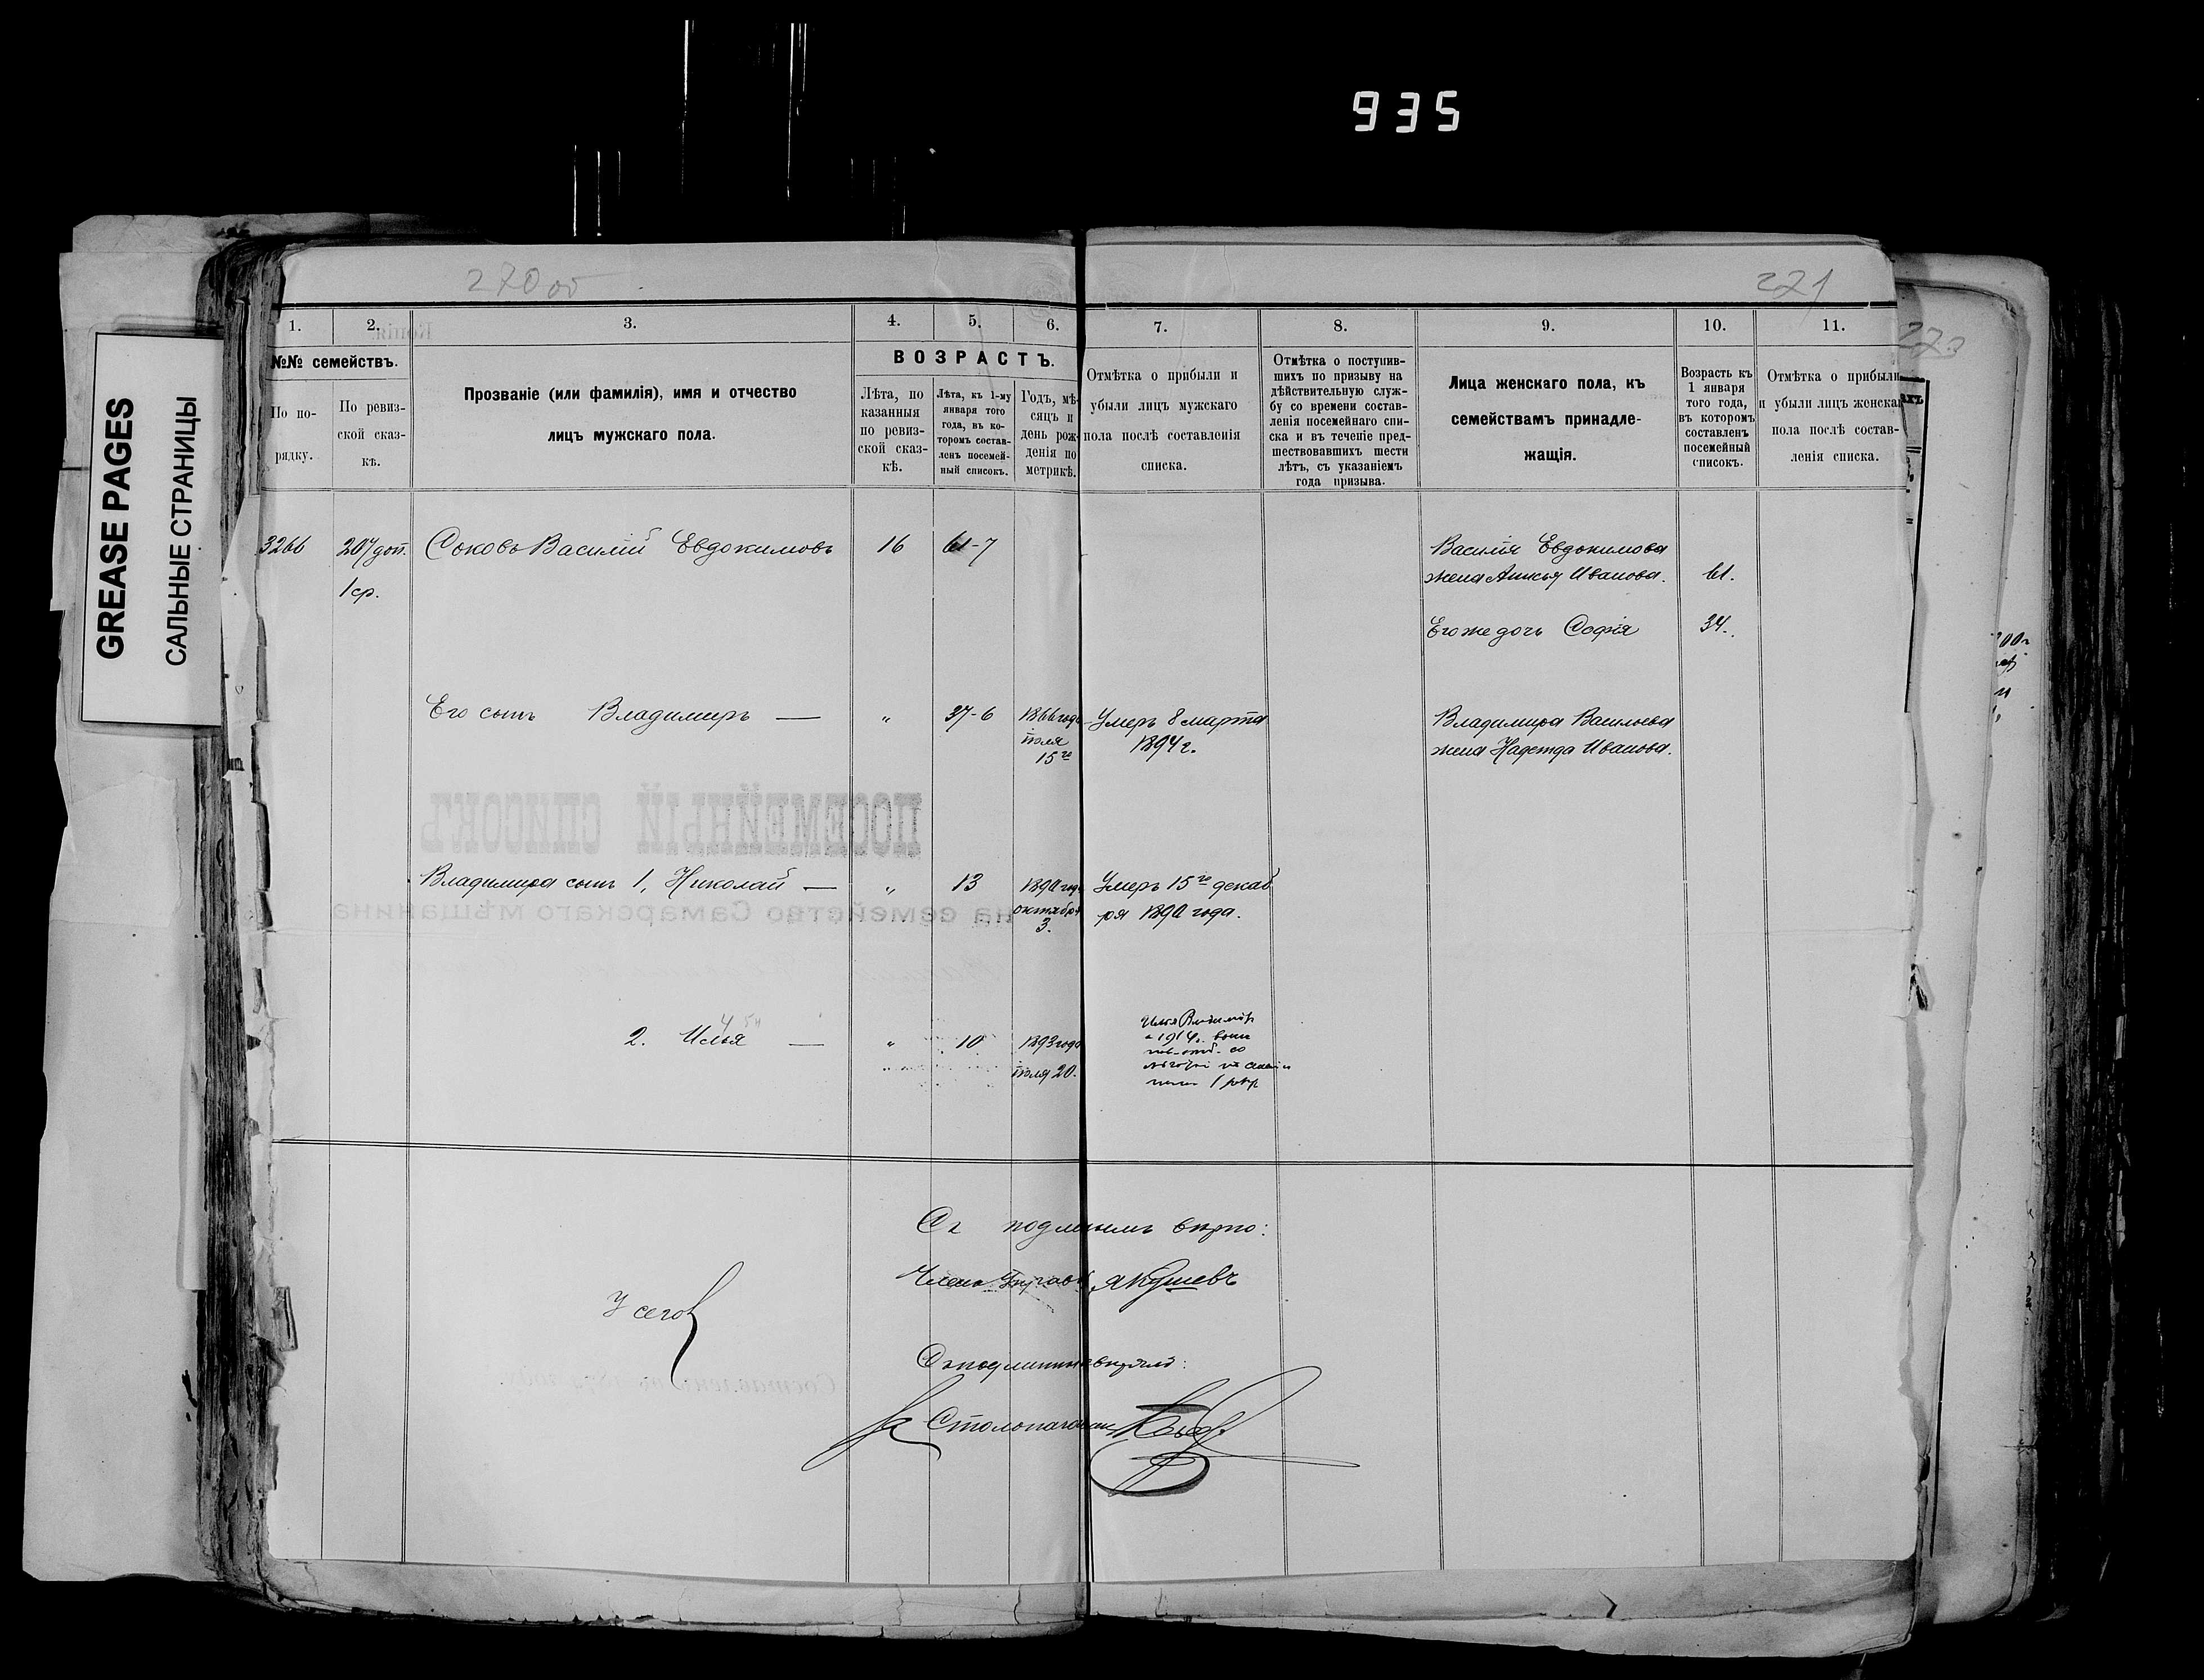 935
GREASE PAGES
САЛЬНЫЕ СТРАНИЦЫ
270 об
271
1.
2.
3.
4.
5.
6.
7.
8.
9.
10.
11.
№№ семействъ.
По по-
рядку.
По ревиз-
ской сказ-
кѣ.
Прозваніе (или фамилія), имя и отчество
лицъ мужскаго пола.
ВОЗРАСТЪ.
Лѣта, по
казанныя
по ревиз-
ской сказ-
кѣ.
Лѣта, къ 1-му
января того
года, въ ко-
торомъ состав-
ленъ посемей-
ный списокъ.
Годъ, мѣ-
сяцъ и
день рож-
денія по
метрикѣ.
Отмѣтка о прибыли и
убыли лицъ мужскаго
пола послѣ составленія
списка.
Отмѣтка о поступив-
шихъ по призыву на
дѣйствительную служ-
бу со времени состав-
ленія посемейнаго спи-
ска и въ теченіе пред-
шествовавшихъ шести
лѣтъ, съ указаніемъ
года призыва.
Лица женскаго пола, къ
семействамъ принадле-
жащія.
Возрастъ къ
1 января
того года,
въ которомъ
составленъ
посемейный
списокъ.
Отмѣтка о прибыли
и убыли лицъ женска
пола послѣ состав-
ленія списка.
3266
207 доп.
1 ср.
Соковъ Василій Евдокимовъ
16
61-7
Василія Евдокимова
жена Анисья Иванова.
61.
Его же дочь Софія
34.
Его сынъ Владимиръ —
"
37-6
1866 года
іюля
15го
Умеръ 8 марта
1894 г.
Владимира Васильева
жена Надежда Иванова.
ПОСЕМЕЙНЫЙ СПИСОКЪ
Владимира сынъ 1, Николай —
"
13
1890 года
октября
3.
Умеръ 15го декаб
ря 1890 года.
на семейство Самарскаго мѣщанина
2. Илья —
"
10
1893 года
іюля 20.
Илья Владимір
1914
Съ подлиннымъ вѣрно:
Членъ Управы Якушевъ
Съ подлиннымъ вѣрно:
За Столоначальника